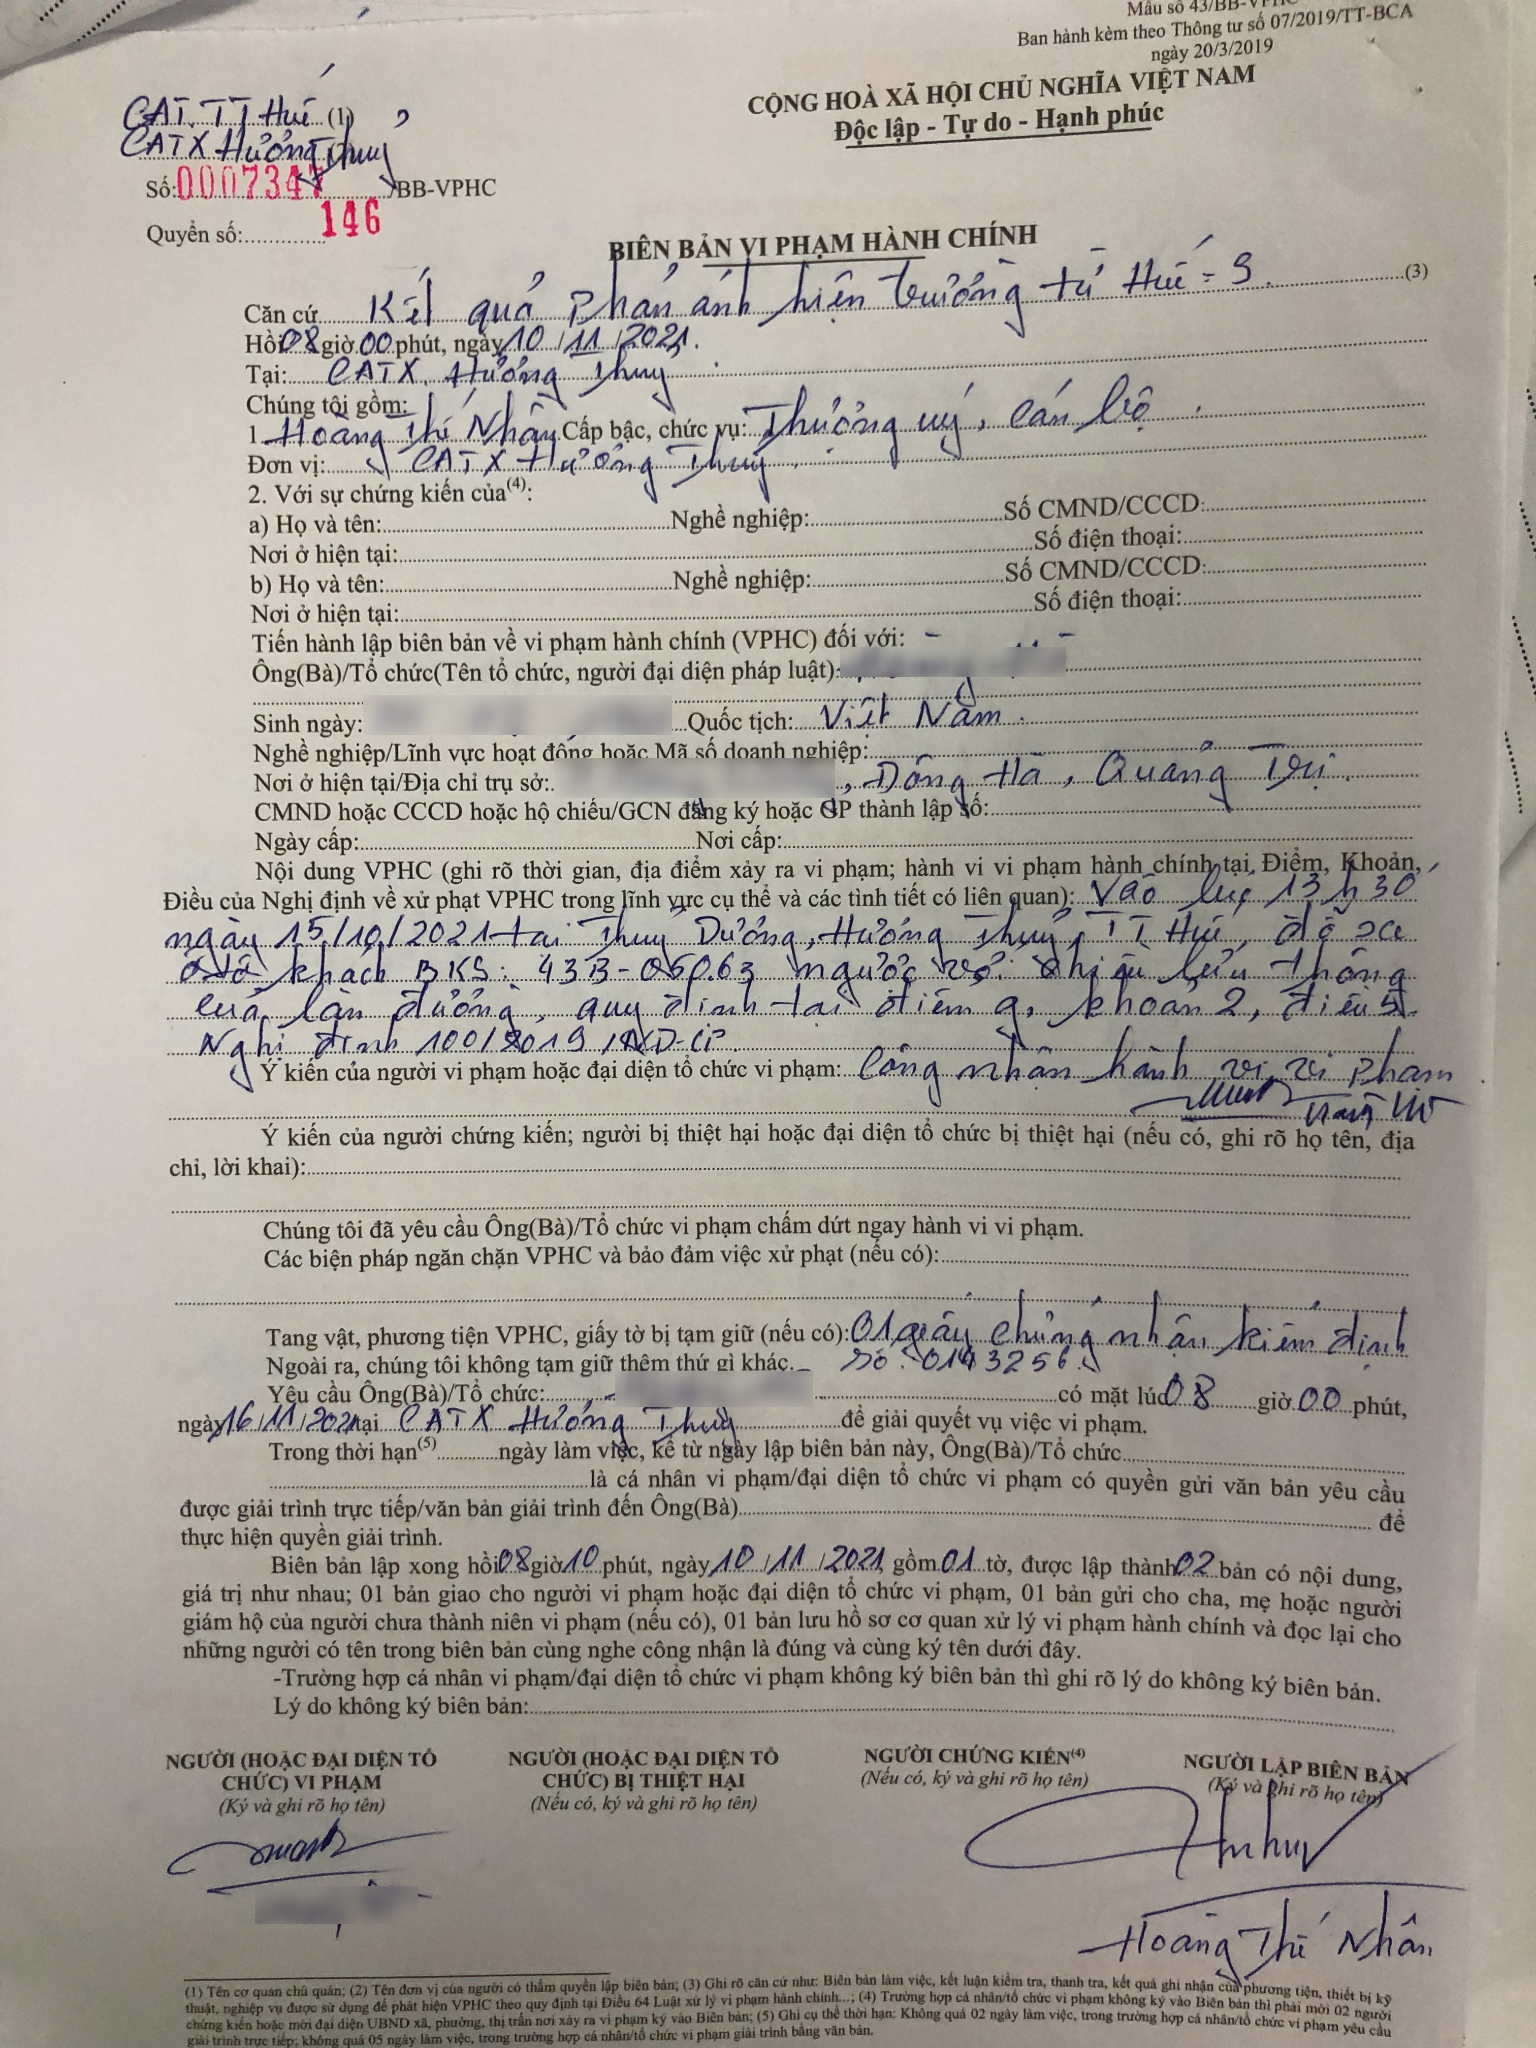 Mẫu số 43/BB-VPHC
Ban hành kèm theo Thông tư số 07/2019/TT-BCA
ngày 20/3/2019
CỘNG HOÀ XÃ HỘI CHỦ NGHĨA VIỆT NAM
Độc lập - Tự do - Hạnh phúc
CAT. TT Huế (1)
CATX Hương Thuỷ
Số: 0007347 /BB-VPHC
Quyển số: 146
BIÊN BẢN VI PHẠM HÀNH CHÍNH
Căn cứ Kết quả phản ánh hiện trường từ Huế - S. (3)
Hồi 08 giờ 00 phút, ngày 10 / 11 / 2021.
Tại: CATX. Hương Thuỷ
Chúng tôi gồm:
1. Hoàng Thế Nhân Cấp bậc, chức vụ: Thượng uý, cán bộ
Đơn vị: CATX Hương Thuỷ
2. Với sự chứng kiến của(4):
a) Họ và tên: Nghề nghiệp: Số CMND/CCCD:
Nơi ở hiện tại: Số điện thoại:
b) Họ và tên: Nghề nghiệp: Số CMND/CCCD:
Nơi ở hiện tại: Số điện thoại:
Tiến hành lập biên bản về vi phạm hành chính (VPHC) đối với:
Ông(Bà)/Tổ chức(Tên tổ chức, người đại diện pháp luật):
Sinh ngày: Quốc tịch: Việt Nam.
Nghề nghiệp/Lĩnh vực hoạt động hoặc Mã số doanh nghiệp:
Nơi ở hiện tại/Địa chỉ trụ sở: , Đông Hà, Quảng Trị.
CMND hoặc CCCD hoặc hộ chiếu/GCN đăng ký hoặc GP thành lập số:
Ngày cấp: Nơi cấp:
Nội dung VPHC (ghi rõ thời gian, địa điểm xảy ra vi phạm; hành vi vi phạm hành chính tại Điểm, Khoản,
Điều của Nghị định về xử phạt VPHC trong lĩnh vực cụ thể và các tình tiết có liên quan): Vào lúc 13h30
ngày 15/10/2021 tại Thuỷ Dương, Hương Thuỷ, TT Huế, đỗ xe
ô tô khách BKS: 43B-05063 ngược với chiều lưu thông
của làn đường, quy định tại điểm g, khoản 2, điều 5.
Nghị định 100/2019/NĐ-CP
Ý kiến của người vi phạm hoặc đại diện tổ chức vi phạm: Công nhận hành vi vi phạm
Ý kiến của người chứng kiến; người bị thiệt hại hoặc đại diện tổ chức bị thiệt hại (nếu có, ghi rõ họ tên, địa
chỉ, lời khai):
Chúng tôi đã yêu cầu Ông(Bà)/Tổ chức vi phạm chấm dứt ngay hành vi vi phạm.
Các biện pháp ngăn chặn VPHC và bảo đảm việc xử phạt (nếu có):
Tang vật, phương tiện VPHC, giấy tờ bị tạm giữ (nếu có): 01 giấy chứng nhận kiểm định
Ngoài ra, chúng tôi không tạm giữ thêm thứ gì khác. số: 0143256.
Yêu cầu Ông(Bà)/Tổ chức: có mặt lúc 08 giờ 00 phút,
ngày 16/11/2021 tại CATX Hương Thuỷ để giải quyết vụ việc vi phạm.
Trong thời hạn(5) ngày làm việc, kể từ ngày lập biên bản này, Ông(Bà)/Tổ chức
là cá nhân vi phạm/đại diện tổ chức vi phạm có quyền gửi văn bản yêu cầu
được giải trình trực tiếp/văn bản giải trình đến Ông(Bà) để
thực hiện quyền giải trình.
Biên bản lập xong hồi 08 giờ 10 phút, ngày 10 / 11 / 2021, gồm 01 tờ, được lập thành 02 bản có nội dung,
giá trị như nhau; 01 bản giao cho người vi phạm hoặc đại diện tổ chức vi phạm, 01 bản gửi cho cha, mẹ hoặc người
giám hộ của người chưa thành niên vi phạm (nếu có), 01 bản lưu hồ sơ cơ quan xử lý vi phạm hành chính và đọc lại cho
những người có tên trong biên bản cùng nghe công nhận là đúng và cùng ký tên dưới đây.
-Trường hợp cá nhân vi phạm/đại diện tổ chức vi phạm không ký biên bản thì ghi rõ lý do không ký biên bản.
Lý do không ký biên bản:
NGƯỜI (HOẶC ĐẠI DIỆN TỔ
CHỨC) VI PHẠM
(Ký và ghi rõ họ tên)
NGƯỜI (HOẶC ĐẠI DIỆN TỔ
CHỨC) BỊ THIỆT HẠI
(Nếu có, ký và ghi rõ họ tên)
NGƯỜI CHỨNG KIẾN(4)
(Nếu có, ký và ghi rõ họ tên)
NGƯỜI LẬP BIÊN BẢN
(Ký và ghi rõ họ tên)
Hoàng Thế Nhân
(1) Tên cơ quan chủ quản; (2) Tên đơn vị của người có thẩm quyền lập biên bản; (3) Ghi rõ căn cứ như: Biên bản làm việc, kết luận kiểm tra, thanh tra, kết quả ghi nhận của phương tiện, thiết bị kỹ
thuật, nghiệp vụ được sử dụng để phát hiện VPHC theo quy định tại Điều 64 Luật xử lý vi phạm hành chính...; (4) Trường hợp cá nhân/tổ chức vi phạm không ký vào Biên bản thì phải mời 02 người
chứng kiến hoặc mời đại diện UBND xã, phường, thị trấn nơi xảy ra vi phạm ký vào Biên bản; (5) Ghi cụ thể thời hạn: Không quá 02 ngày làm việc, trong trường hợp cá nhân/tổ chức vi phạm yêu cầu
giải trình trực tiếp; không quá 05 ngày làm việc, trong trường hợp cá nhân/tổ chức vi phạm giải trình bằng văn bản.